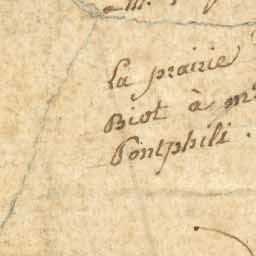 La prairie
Biot à mr
Pontphili.